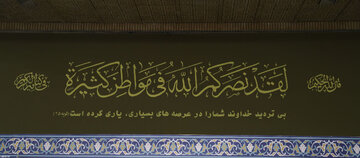 لَقَدْ نَصَرَكُمُ اللَّهُ فِي مَوَاطِنَ كَثِيرَةٍ
بی تردید خداوند شما را در عرصه های بسیاری، یاری کرده است